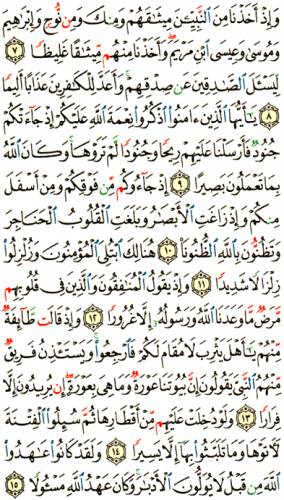 وَإِذْ أَخَذْنَا مِنَ ٱلنَّبِيِّـۧنَ مِيثَٰقَهُمْ وَمِنكَ وَمِن نُّوحٍ وَإِبْرَٰهِيمَ
وَمُوسَىٰ وَعِيسَى ٱبْنِ مَرْيَمَ ۖ وَأَخَذْنَا مِنْهُم مِّيثَٰقًا غَلِيظًا ٧
لِّيَسْـَٔلَ ٱلصَّٰدِقِينَ عَن صِدْقِهِمْ ۚ وَأَعَدَّ لِلْكَٰفِرِينَ عَذَابًا أَلِيمًا
٨ يَٰٓأَيُّهَا ٱلَّذِينَ ءَامَنُوا۟ ٱذْكُرُوا۟ نِعْمَةَ ٱللَّهِ عَلَيْكُمْ إِذْ جَآءَتْكُمْ
جُنُودٌ فَأَرْسَلْنَا عَلَيْهِمْ رِيحًا وَجُنُودًا لَّمْ تَرَوْهَا ۚ وَكَانَ ٱللَّهُ
بِمَا تَعْمَلُونَ بَصِيرًا ٩ إِذْ جَآءُوكُم مِّن فَوْقِكُمْ وَمِنْ أَسْفَلَ
مِنكُمْ وَإِذْ زَاغَتِ ٱلْأَبْصَٰرُ وَبَلَغَتِ ٱلْقُلُوبُ ٱلْحَنَاجِرَ
وَتَظُنُّونَ بِٱللَّهِ ٱلظُّنُونَا۠ ١٠ هُنَالِكَ ٱبْتُلِىَ ٱلْمُؤْمِنُونَ وَزُلْزِلُوا۟
زِلْزَالًا شَدِيدًا ١١ وَإِذْ يَقُولُ ٱلْمُنَٰفِقُونَ وَٱلَّذِينَ فِى قُلُوبِهِم
مَّرَضٌ مَّا وَعَدَنَا ٱللَّهُ وَرَسُولُهُۥٓ إِلَّا غُرُورًا ١٢ وَإِذْ قَالَت طَّآئِفَةٌ
مِّنْهُمْ يَٰٓأَهْلَ يَثْرِبَ لَا مُقَامَ لَكُمْ فَٱرْجِعُوا۟ ۚ وَيَسْتَـْٔذِنُ فَرِيقٌ
مِّنْهُمُ ٱلنَّبِىَّ يَقُولُونَ إِنَّ بُيُوتَنَا عَوْرَةٌ وَمَا هِىَ بِعَوْرَةٍ ۖ إِن يُرِيدُونَ إِلَّا
فِرَارًا ١٣ وَلَوْ دُخِلَتْ عَلَيْهِم مِّنْ أَقْطَارِهَا ثُمَّ سُئِلُوا۟ ٱلْفِتْنَةَ
لَـَٔاتَوْهَا وَمَا تَلَبَّثُوا۟ بِهَآ إِلَّا يَسِيرًا ١٤ وَلَقَدْ كَانُوا۟ عَٰهَدُوا۟
ٱللَّهَ مِن قَبْلُ لَا يُوَلُّونَ ٱلْأَدْبَٰرَ ۚ وَكَانَ عَهْدُ ٱللَّهِ مَسْـُٔولًا ١٥